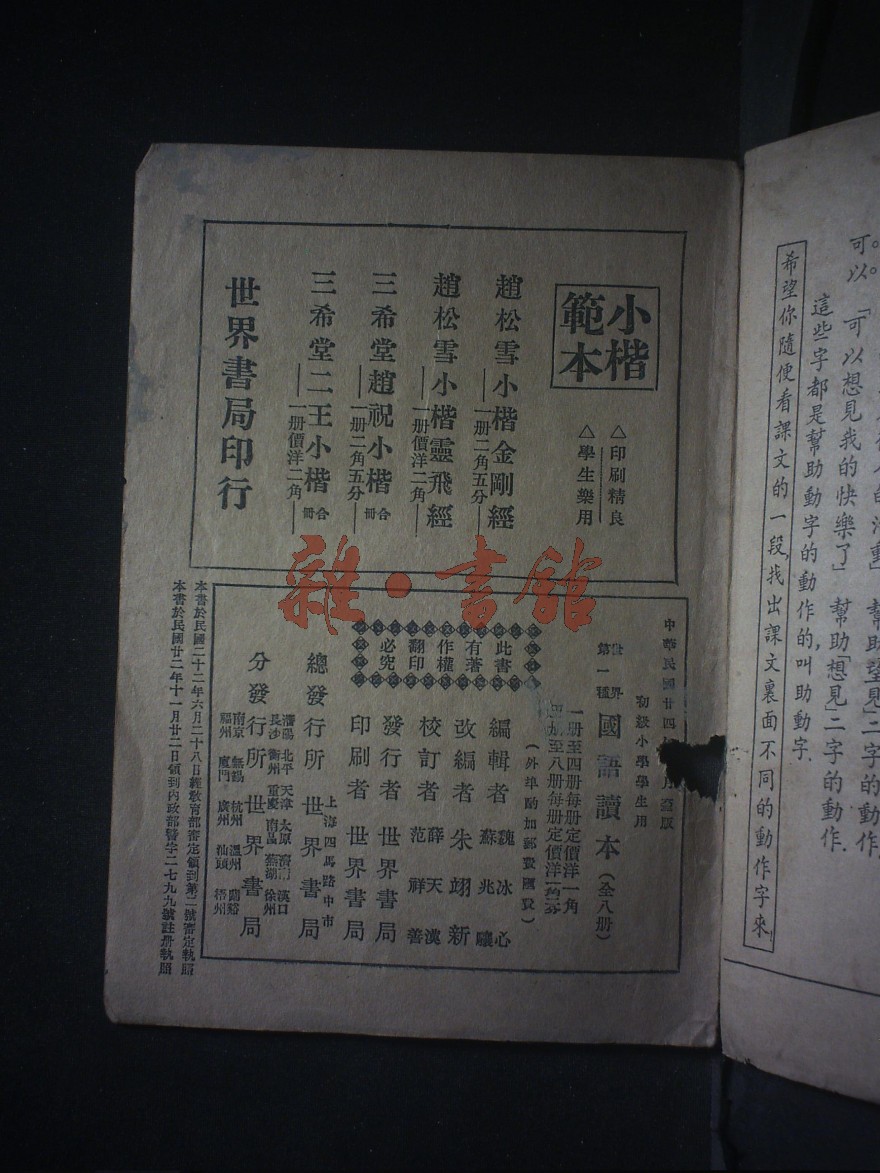 可。以。「可以想見我的快樂了」幫助「想見」二字的動作.
這些字都是幫助動字的動作的,叫助動字.
希望你隨便看課文的一段,找出課文裏面不同的動作字來.
小楷
範本
△印刷精良
△學生樂用
趙松雪小楷金剛經
一册二角五分
趙松雪小楷靈飛經
一册價洋二角
三希堂趙祝小楷合册
一册二角五分
三希堂二王小楷合册
一册價洋二角
世界書局印行
中華民國廿四
月 版
初級小學學生用
世界第一種 國語讀本(全八册)
一册至四册每册定價洋一角
册至八册每册定價洋
(外埠酌加郵費匯費)
此書
有著
作權
翻印
必究
編輯者 魏冰心 蘇兆驤
改編者 朱翊新
校訂者 薛天漢 范祥善
發行者 世界書局
印刷者 世界書局
上海四馬路中市
總發行所 世界書局
瀋陽 北平 天津 太原 濟南 漢口
長沙 衡州 重慶 南昌 蕪湖 徐州
分發行所 世界書局
南京 無錫 杭州 溫州 蘭谿
福州 廈門 廣州 汕頭 梧州
本書於民國二十二年六月二十八日經敎育部審定領到第二號審定執照
本書於民國廿二年十一月廿二日領到內政部警字二七九九號註册執照
雜·書館